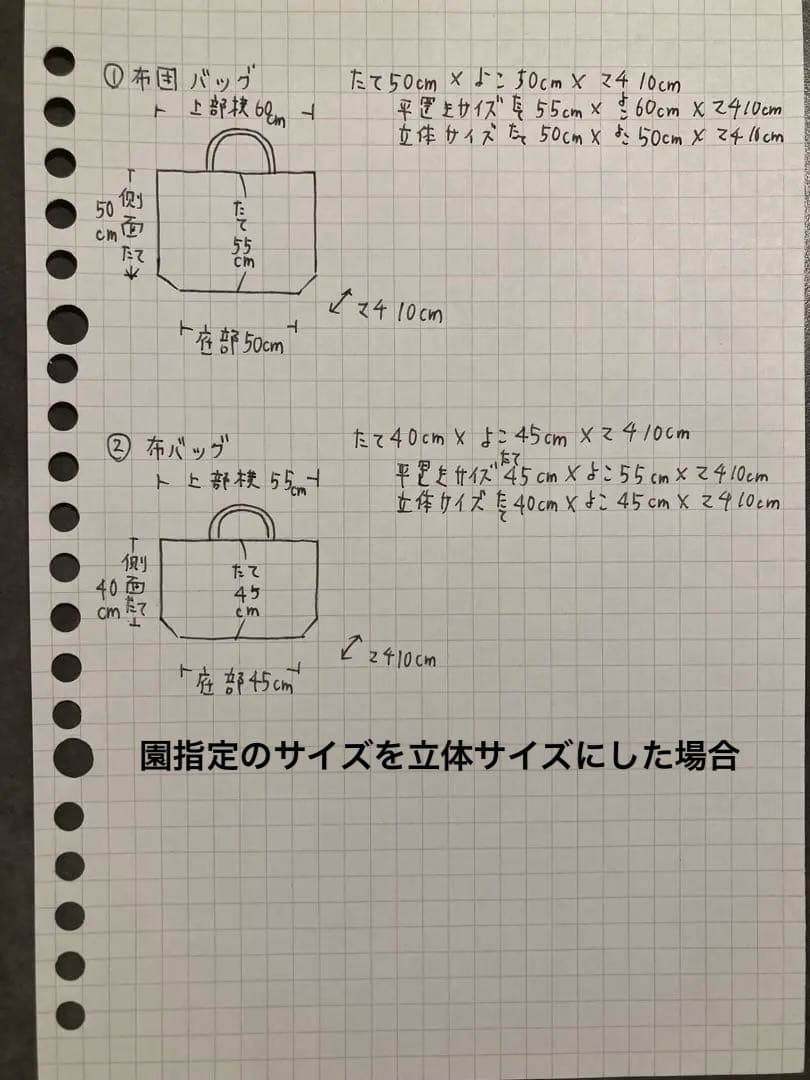 ① 布団バッグ
たて50cm × よこ50cm × マチ10cm
平置きサイズ たて55cm × よこ60cm × マチ10cm
立体サイズ たて50cm × よこ50cm × マチ10cm
上部横60cm
50cm 側面たて
たて55cm
マチ10cm
底部50cm
② 布バッグ
たて40cm × よこ45cm × マチ10cm
平置きサイズ たて45cm × よこ55cm × マチ10cm
立体サイズ たて40cm × よこ45cm × マチ10cm
上部横55cm
40cm 側面たて
たて45cm
マチ10cm
底部45cm
園指定のサイズを立体サイズにした場合